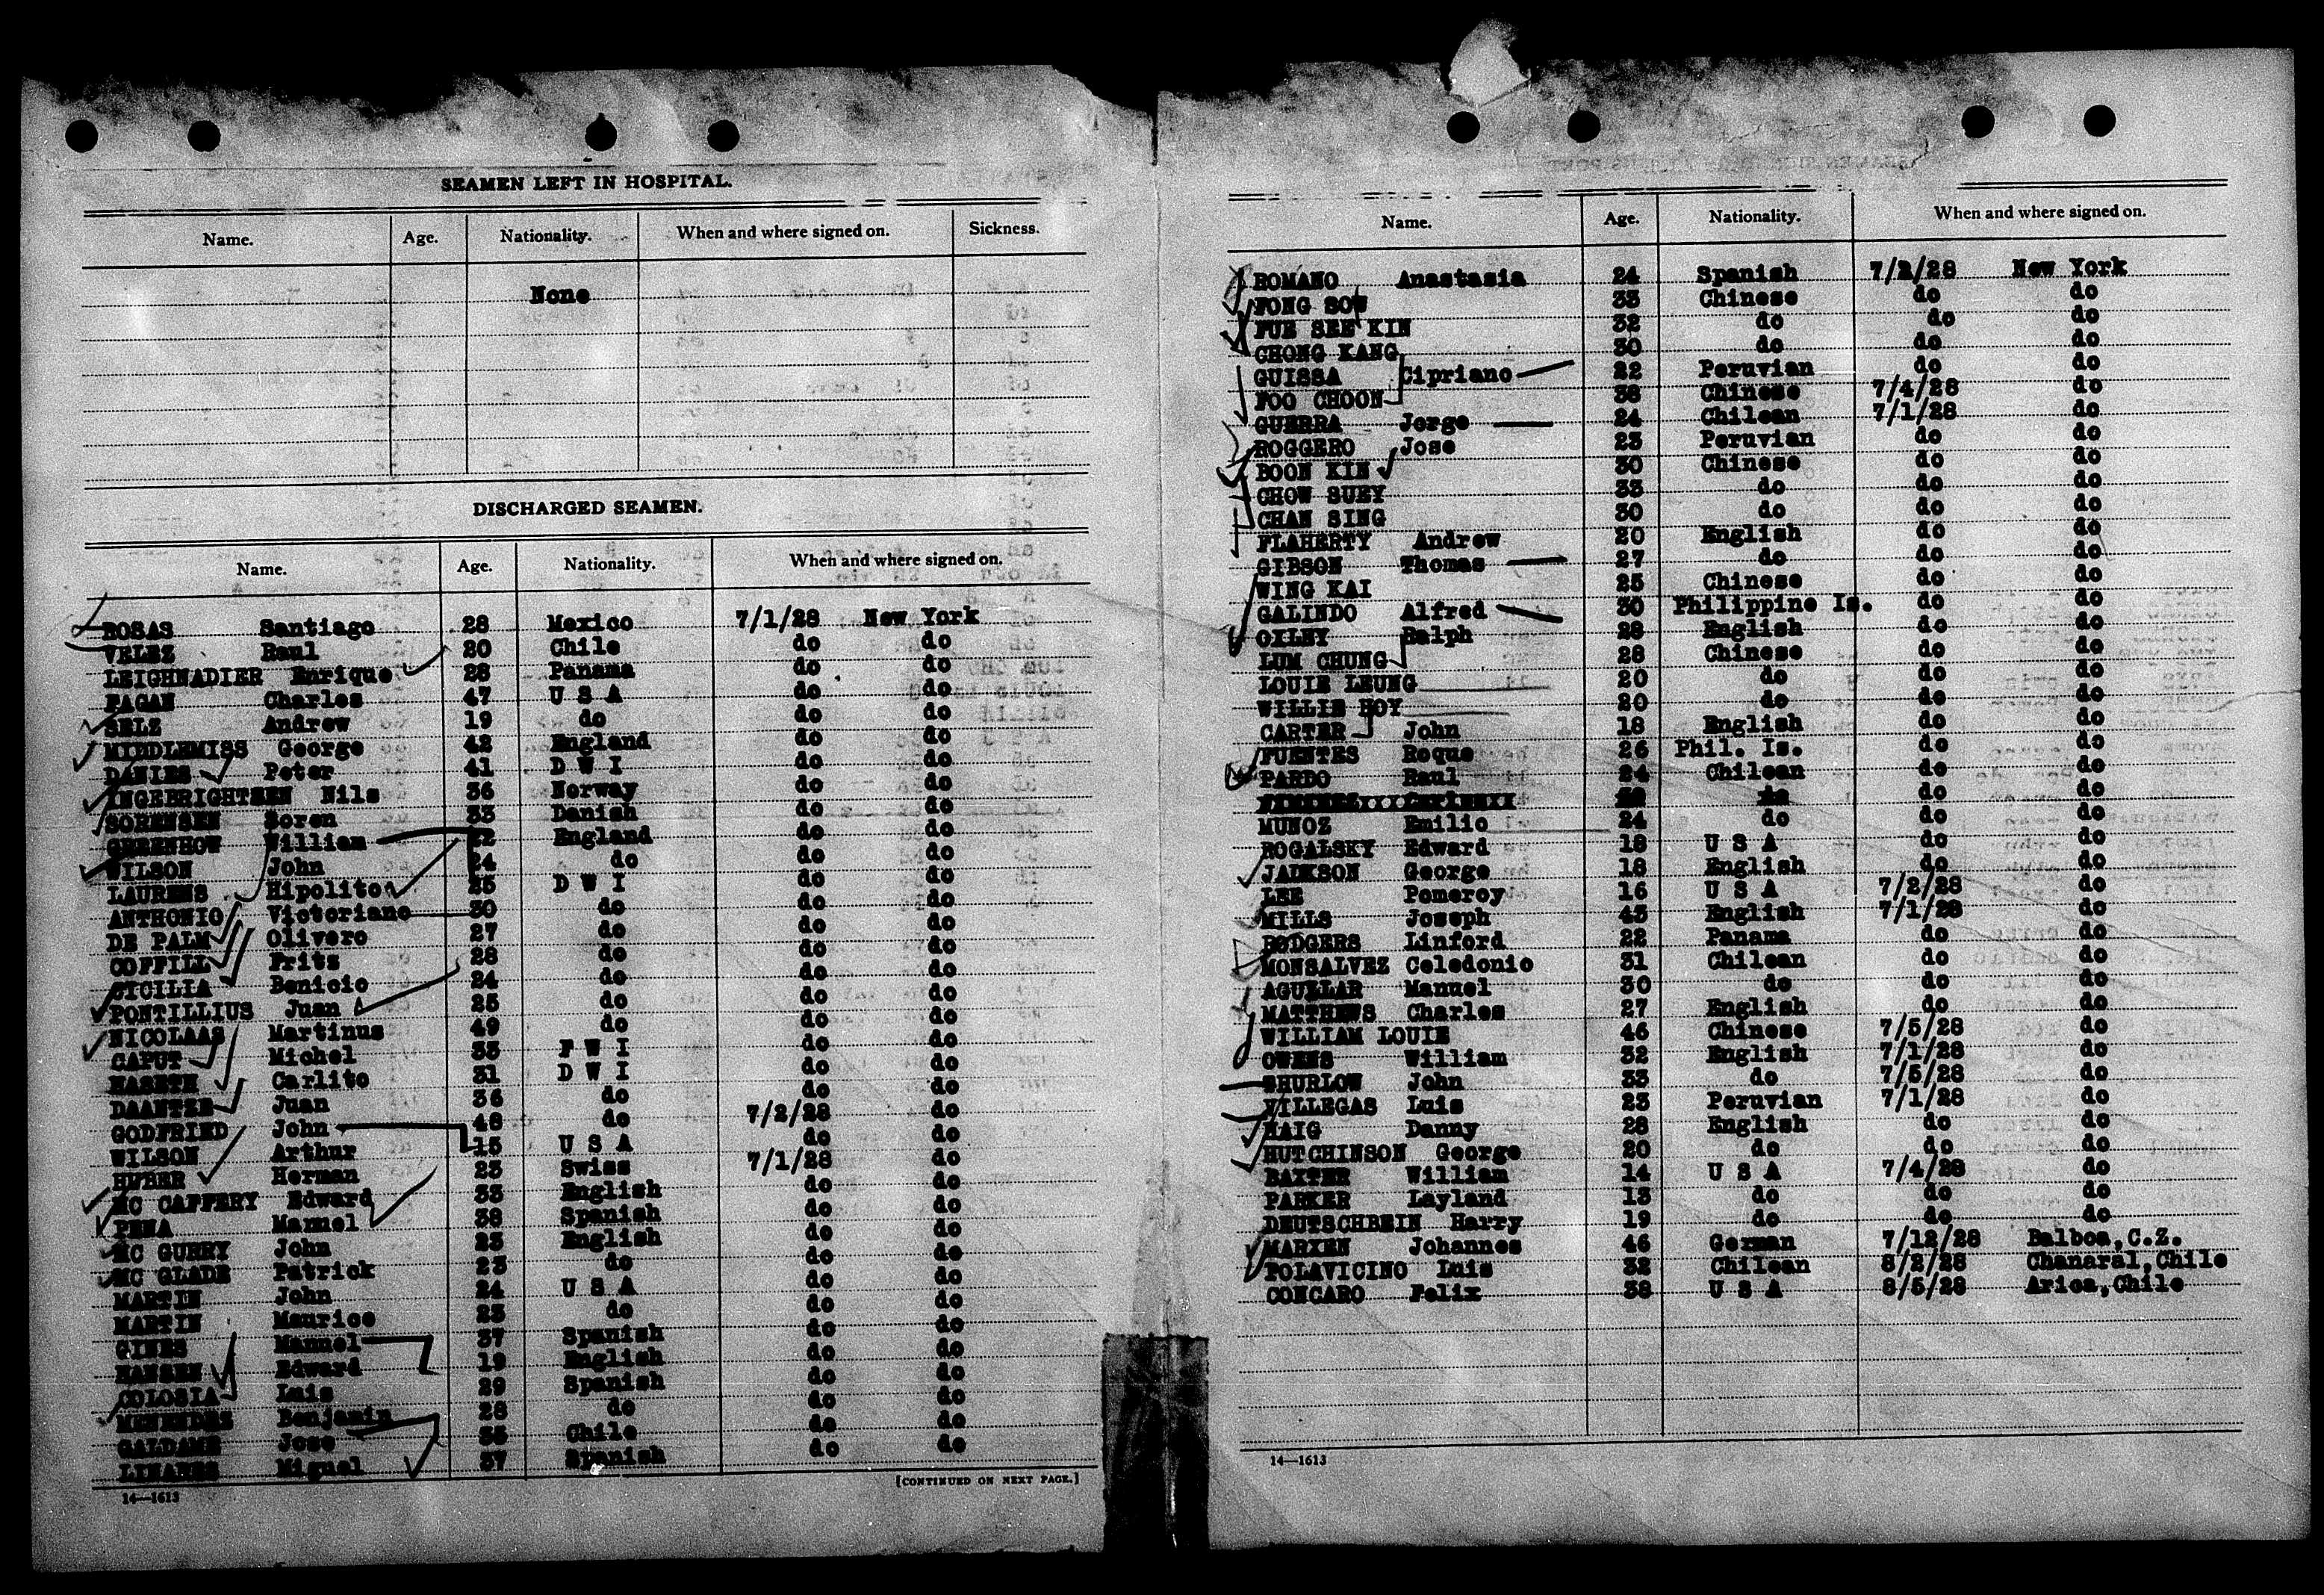 SEAMEN LEFT IN HOSPITAL.
Name. Age. Nationality. When and where signed on. Sickness.
None
DISCHARGED SEAMEN.
Name. Age. Nationality. When and where signed on.
ROSAS Santiago 28 Mexico 7/1/28 New York
VELEZ Raul 20 Chile do do
LEIGHNADIER Enrique 28 Panama do do
FAGAN Charles 47 U S A do do
SELZ Andrew 19 do do do
MIDDLEMISS George 42 England do do
DANIES Peter 41 D W I do do
INGEBRIGHTSEN Nils 36 Norway do do
SORENSEN Soren 33 Danish do do
GREENHOW William 22 England do do
WILSON John 24 do do do
LAURENS Hipolito 35 D W I do do
ANTHONIO Victoriano 30 do do do
DE PALM Olivero 27 do do do
COFFILL Frits 28 do do do
CICILIA Benicio 24 do do do
PONTILLIUS Juan 25 do do do
NICOLAAS Martinus 49 do do do
CAPUT Michel 33 F W I do do
Carlito 31 D W I do do
DAANTZE Juan 36 do do do
GODFRIED John 48 do 7/2/28 do
WILSON Arthur 15 U S A do do
HUBER Herman 23 Swiss 7/1/28 do
MC CAFFERY Edward 33 English do do
PENA Manuel 38 Spanish do do
MC GURRY John 23 English do do
MC GLADE Patrick 23 do do do
MARTIN John 24 U S A do do
MARTIN Maurice 23 do do do
GINES Manuel 37 Spanish do do
HANSEN Edward 19 English do do
COLOSIA Luis 29 Spanish do do
MENENDEZ Benjamin 28 do do do
GALDAME Jose 35 Chile do do
LINARES Miguel 37 Spanish do do
14—1613 [CONTINUED ON NEXT PAGE.]
Name. Age. Nationality. When and where signed on.
ROMANO Anastasia 24 Spanish 7/2/28 New York
FONG SOW 33 Chinese do do
FUE SEE KIN 32 do do do
CHONG KANG 30 do do do
GUISSA Cipriano 22 Peruvian do do
FOO CHOON 38 Chinese 7/4/28 do
GUERRA Jorge 24 Chilean 7/1/28 do
ROGGERO Jose 23 Peruvian do do
BOON KIN 30 Chinese do do
CHOW SUEY 33 do do do
CHAN SING 30 do do do
FLAHERTY Andrew 20 English do do
GIBSON Thomas 27 do do do
WING KAI 25 Chinese do do
GALINDO Alfred 30 Philippine Is. do do
OILNY Ralph 28 English do do
LUM CHUNG 28 Chinese do do
LOUIE LEUNG 20 do do do
WILLIE HOY 20 do do do
CARTER John 18 English do do
FUENTES Roque 26 Phil. Is. do do
PARDO Raul 24 Chilean do do
do do
MUNOZ Emilio 24 do do do
ROGALSKY Edward 18 U S A do do
JACKSON George 18 English do do
LEE Pomeroy 16 U S A 7/2/28 do
MILLS Joseph 43 English 7/1/28 do
RODGERS Linford 22 Panama do do
MONSALVEZ Celedonio 31 Chilean do do
AGUILAR Manuel 30 do do do
MATTHEWS Charles 27 English do do
WILLIAM LOUIE 46 Chinese 7/5/28 do
OWENS William 32 English 7/1/28 do
SHURLOW John 33 do 7/5/28 do
VILLEGAS Luis 23 Peruvian 7/1/28 do
HAIG Danny 28 English do do
HUTCHINSON George 20 do do do
BAXTER William 14 U S A 7/4/28 do
PARKER Layland 13 do do do
DEUTSCHBEIN Harry 19 do do do
MARXEN Johannes 46 German 7/12/28 Balboa, C.Z.
POLAVICINO Luis 32 Chilean 8/2/28 Chanaral, Chile
CONCARO Felix 38 U S A 8/5/28 Arica, Chile
14—1613